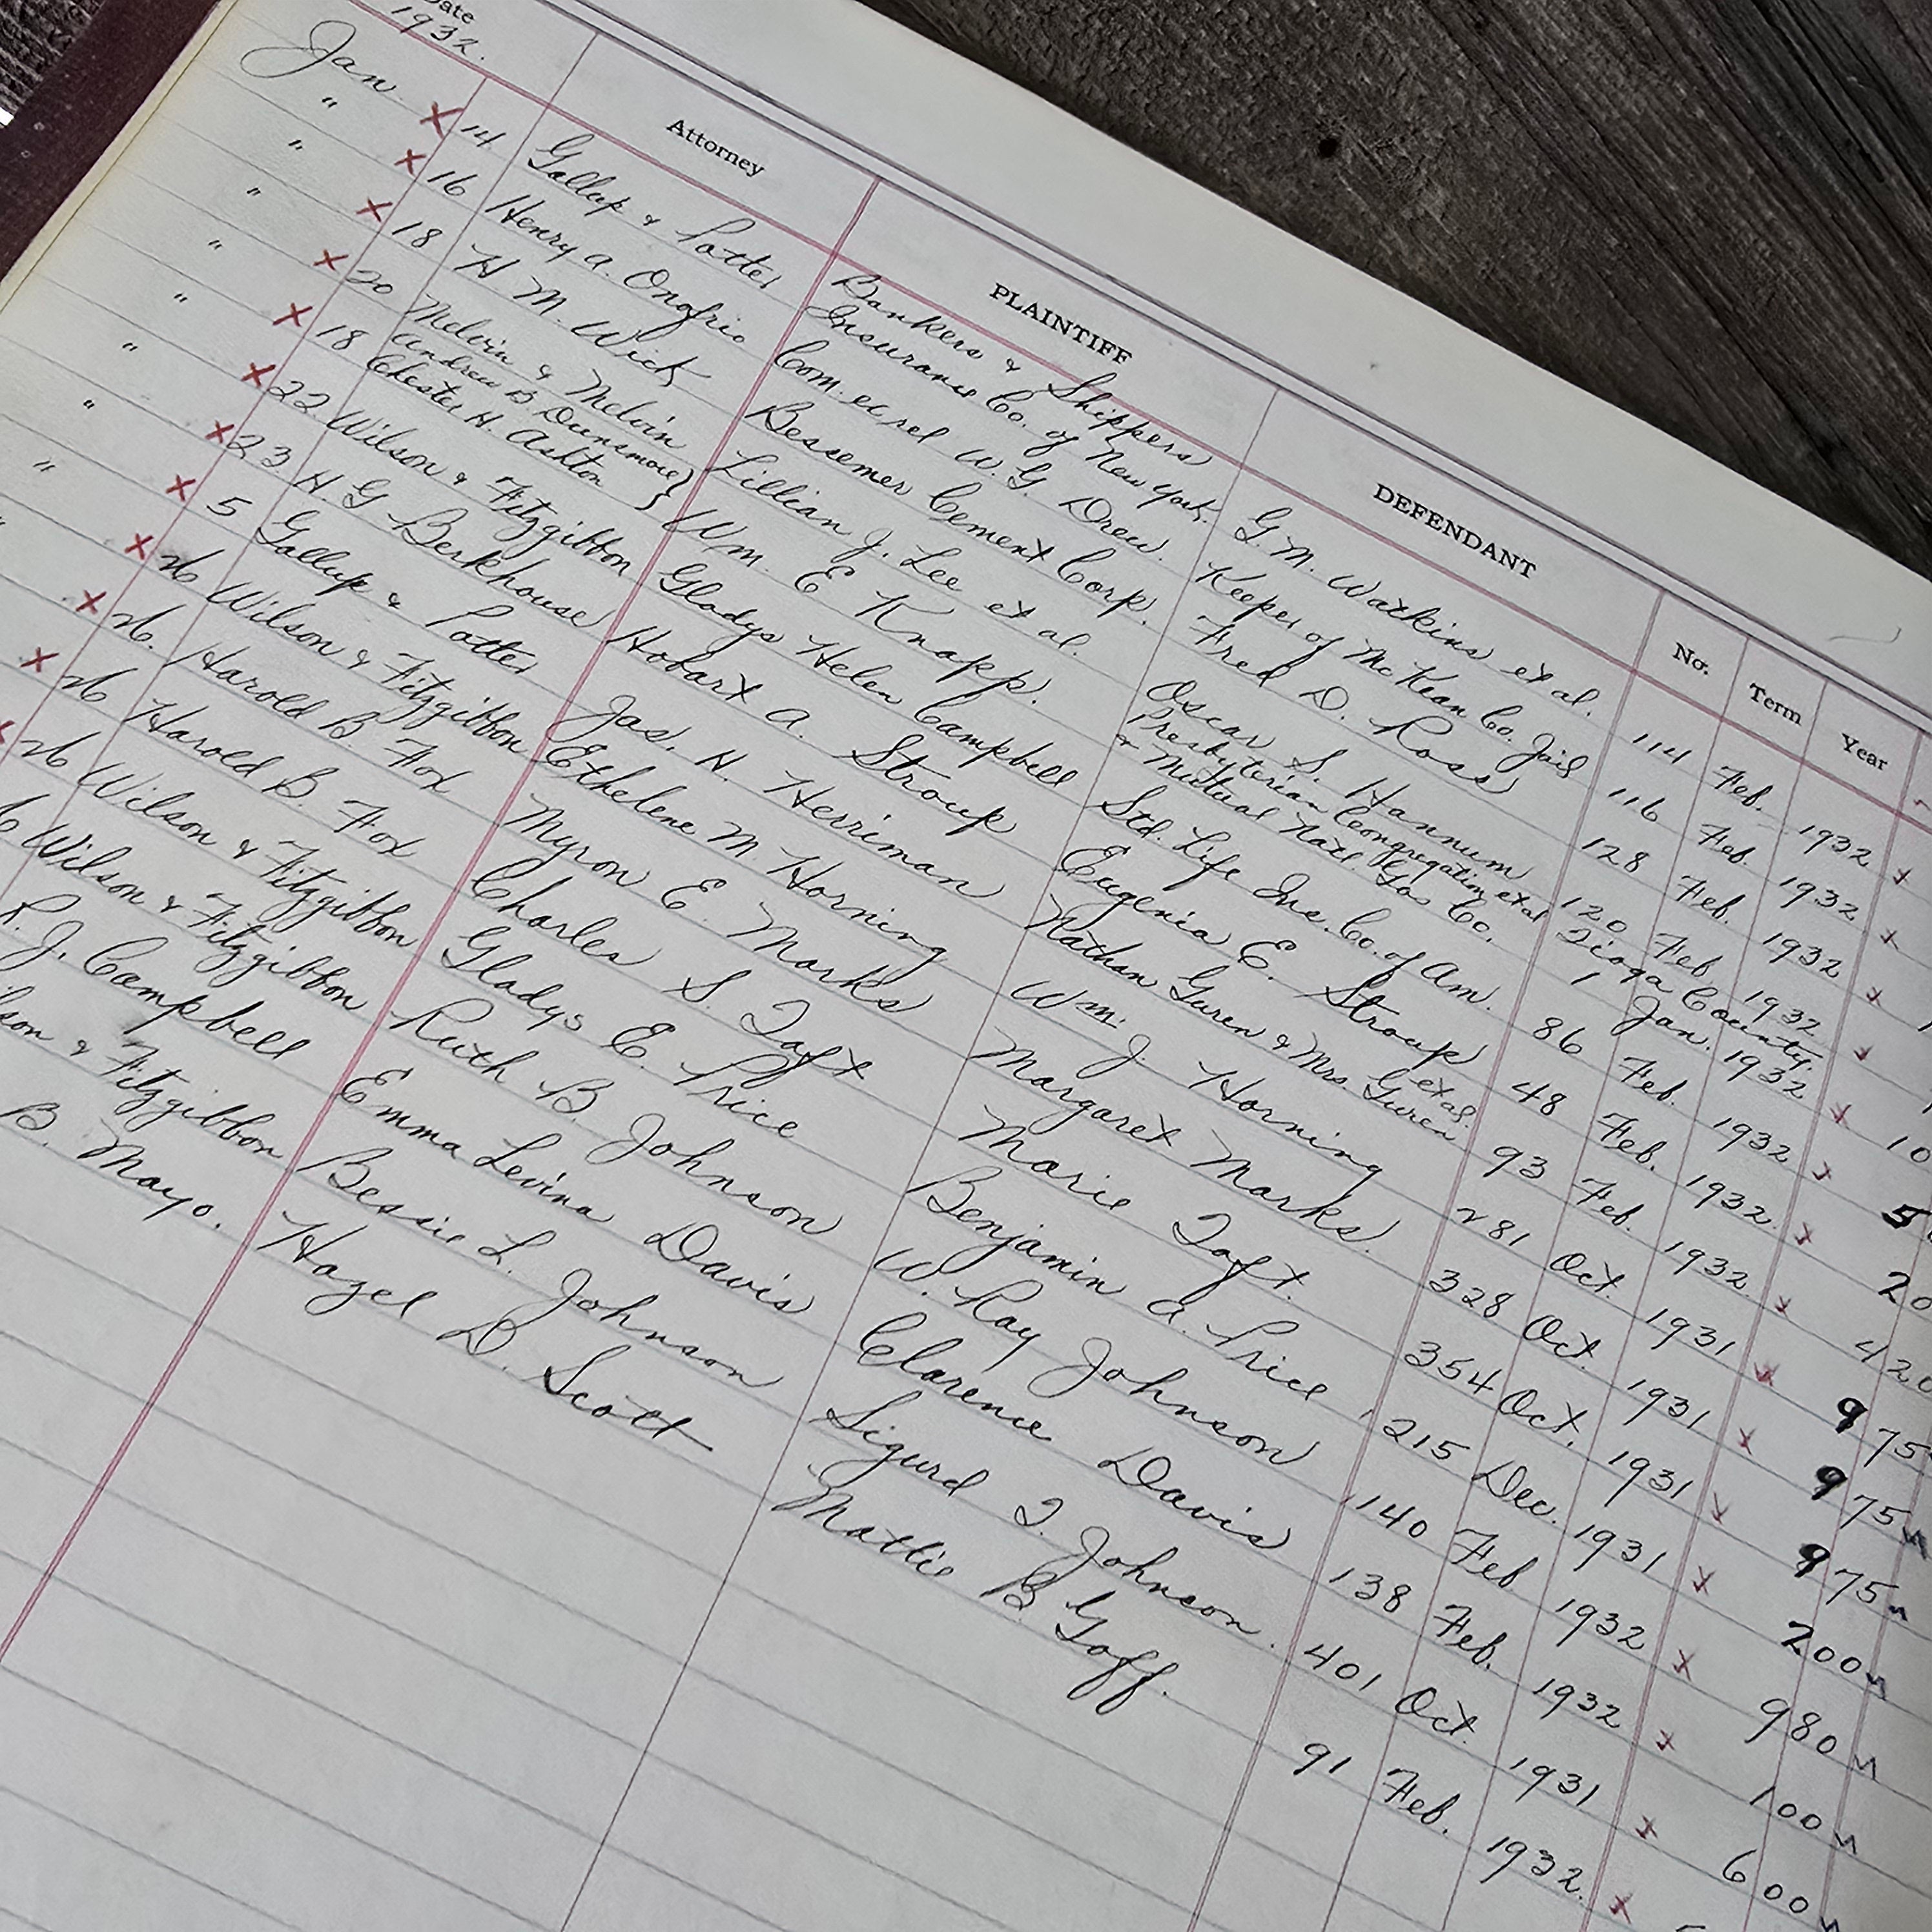 Date Attorney PLAINTIFF DEFENDANT No. Term Year
1932.
Jan. 14 Gallup & Potter Bankers & Shippers Insurance Co. of New York. G. M. Watkins et al. 114 Feb. 1932
" 16 Henry A. Onofrio Com. ex rel W. G. Drew. Keeper of McKean Co. Jail 116 Feb. 1932
" 18 H. M. Wick Bessemer Cement Corp. Fred D. Ross 128 Feb. 1932
" 20 Melvin & Melvin Lillian J. Lee et al. Oscar S. Hannum 120 Feb 1932
" 18 Andrew B Dunsmore Chester H. Ashton } Wm. E Knapp. Presbyterian Congregation et al & Mutual Natl. Gas Co. Tioga County. 1 Jan. 1932
" 22 Wilson & Fitzgibbon Gladys Helen Campbell Std. Life Ins. Co. of Am. 86 Feb. 1932 10
" 23 H. G Berkhouse Hobart A. Stroup Eugenia E. Stroup 48 Feb. 1932. 5
" 5 Gallup & Potter Jas. H. Herriman Nathan Guren & Mrs. Guren et al. 93 Feb. 1932 20
" 26 Wilson & Fitzgibbon Ethelene M. Horning Wm. J Horning 281 Oct 1931 420
26. Harold B. Fox Myron E. Marks Margaret Marks. 328 Oct. 1931 975
26 Harold B. Fox Charles S. Taft Marie Taft. 354 Oct. 1931 975
26 Wilson & Fitzgibbon Gladys E. Price Benjamin A. Price 215 Dec. 1931 975
Wilson & Fitzgibbon Ruth B. Johnson W. Ray Johnson 140 Feb 1932 200
R. J. Campbell Emma Levina Davis Clarence Davis 138 Feb. 1932 980
son & Fitzgibbon Bessie L. Johnson Sigurd T. Johnson. 401 Oct. 1931 100
B. Mayo. Hazel D. Scott Mattie B Goff. 91 Feb. 1932. 600